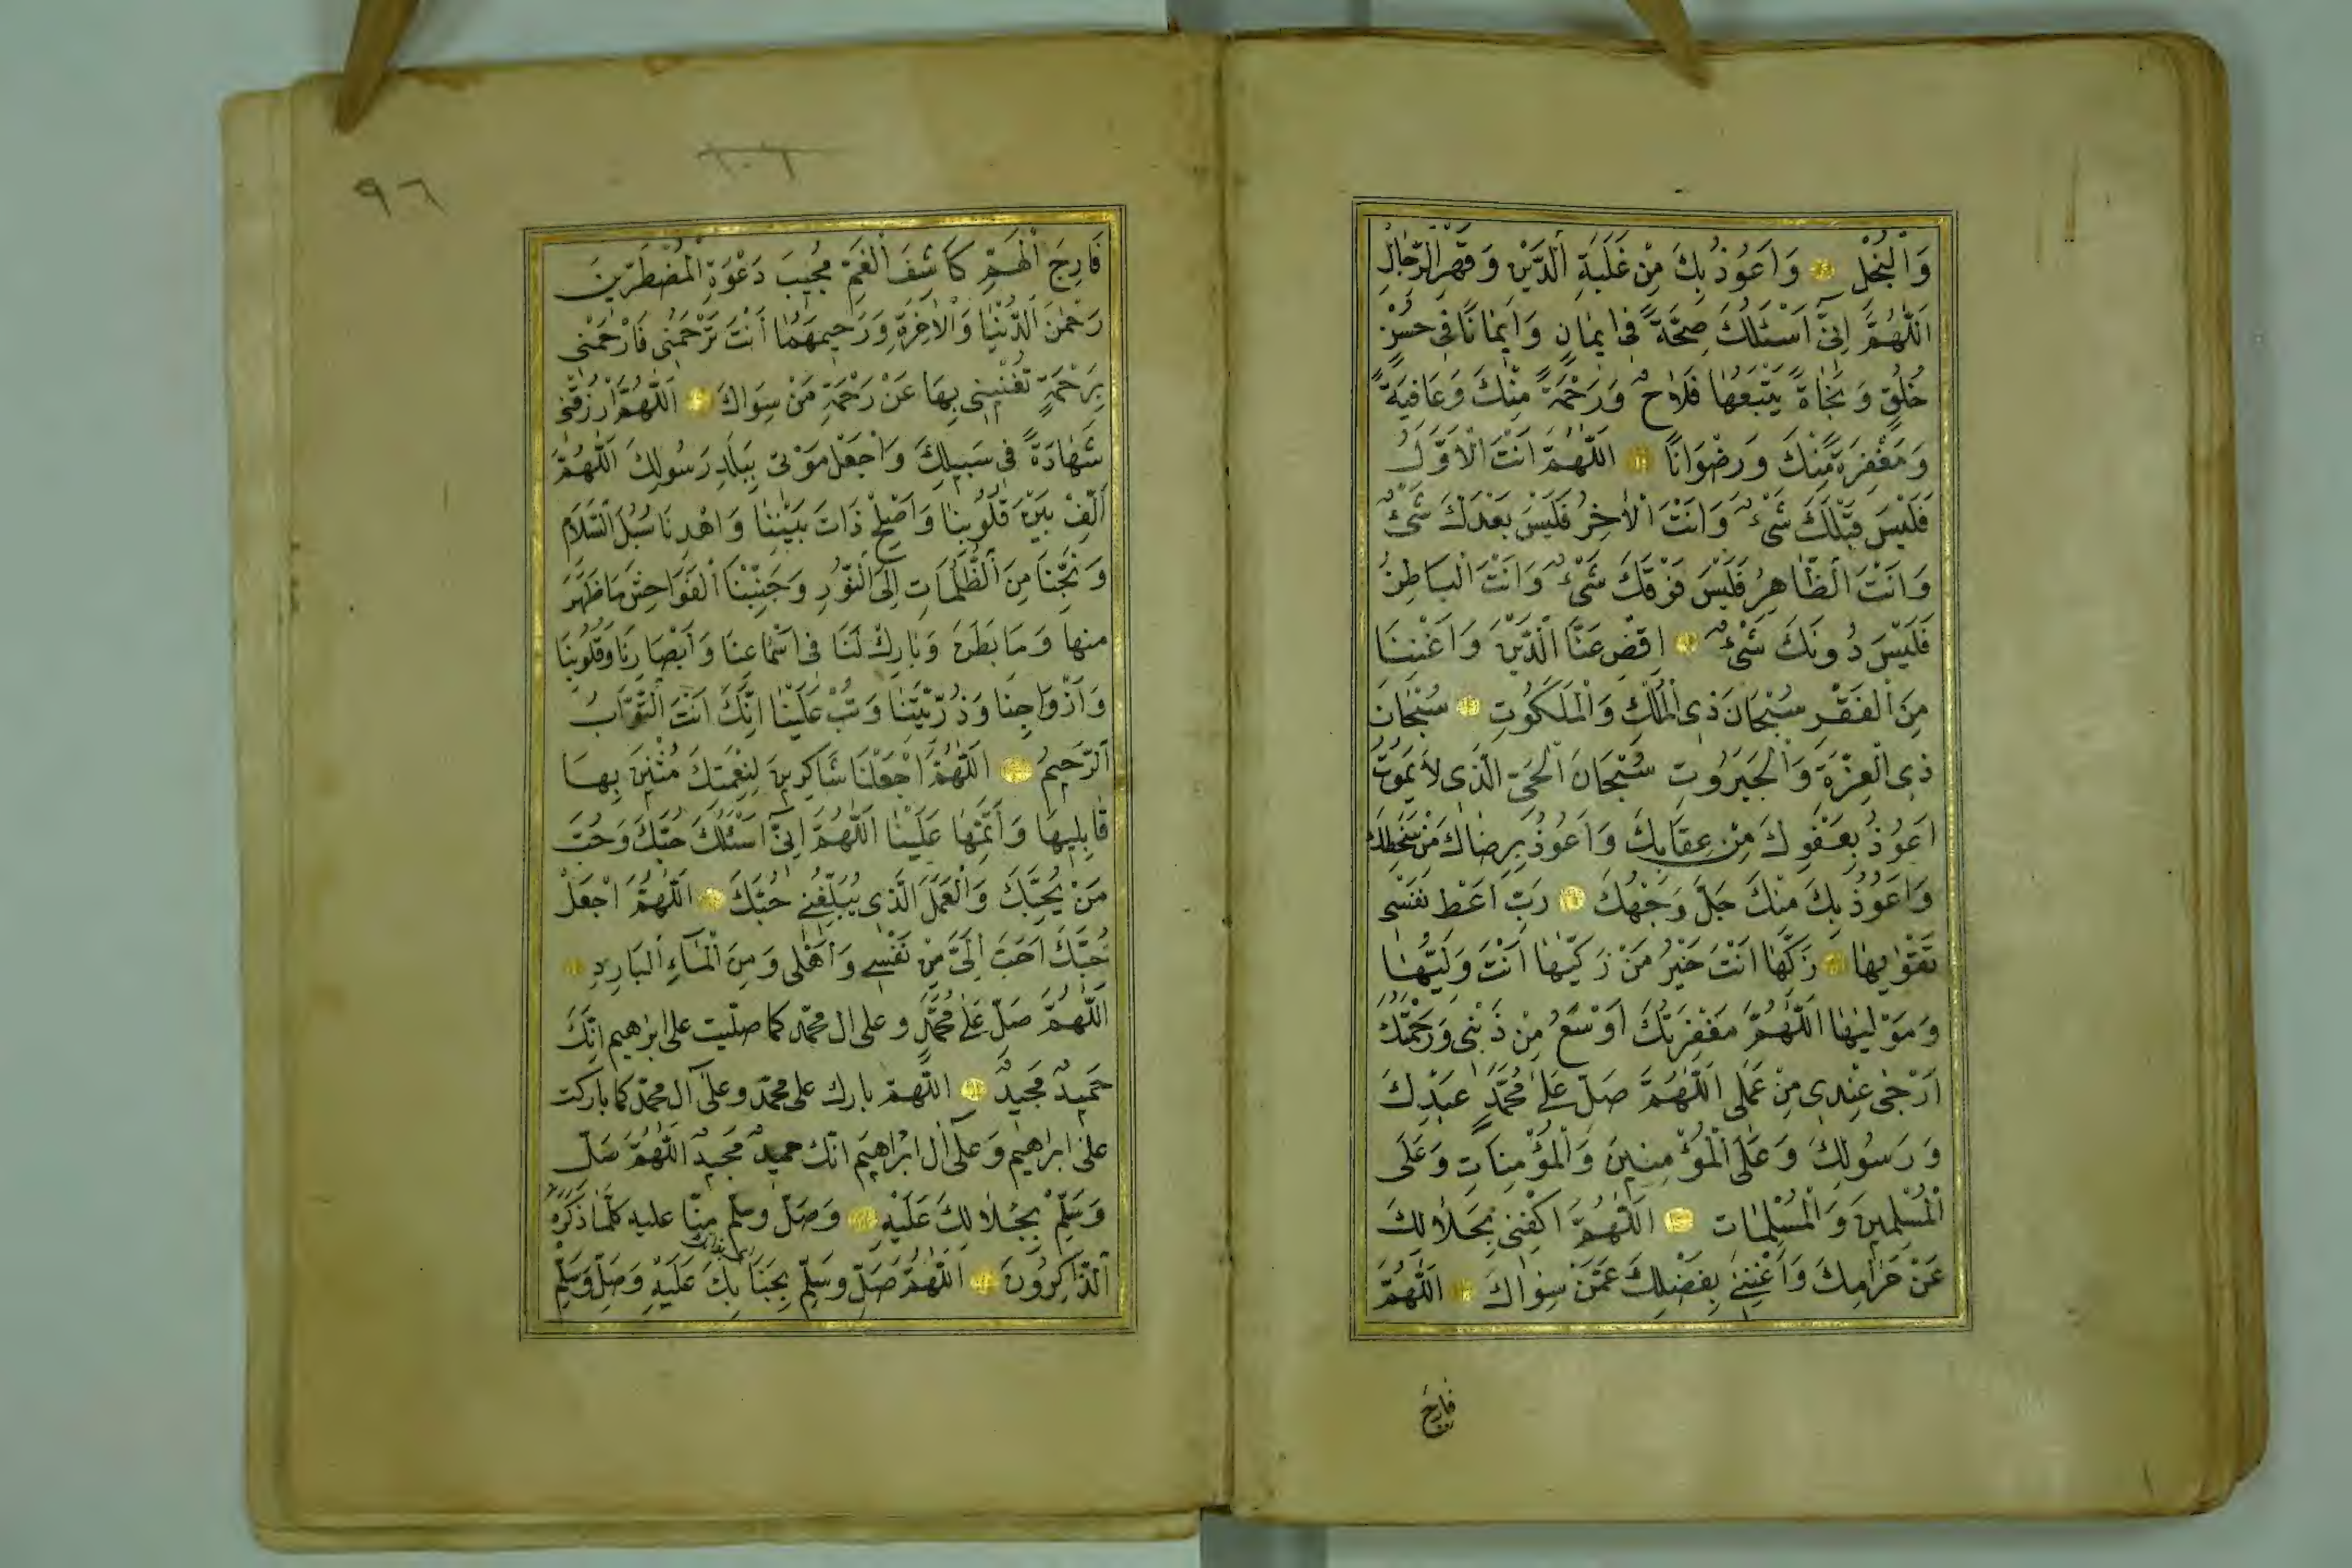 وَالْبُخْلِ وَاَعُوذُ بِكَ مِنْ غَلَبَةِ الدَّيْنِ وَقَهْرِ الرِّجَالِ
اَللّٰهُمَّ اِنّٓى اَسْئَلُكَ صِحَّةً فٖى اِيمَانٍ وَاِيمَانًا فٖى حُسْنِ
خُلُقٍ وَنَجَاةً يَتْبَعُهَا فَلَاحٌ وَرَحْمَةً مِنْكَ وَعَافِيَةً
وَمَغْفِرَةً مِنْكَ وَرِضْوَانًا اَللّٰهُمَّ اَنْتَ الْاَوَّلُ
فَلَيْسَ قَبْلَكَ شَىْءٌ وَاَنْتَ الْاٰخِرُ فَلَيْسَ بَعْدَكَ شَىْءٌ
وَاَنْتَ الظَّاهِرُ فَلَيْسَ فَوْقَكَ شَىْءٌ وَاَنْتَ الْبَاطِنُ
فَلَيْسَ دُونَكَ شَىْءٌ اِقْضِ عَنَّا الدَّيْنَ وَاَغْنِنَا
مِنَ الْفَقْرِ سُبْحَانَ ذِى الْمُلْكِ وَالْمَلَكُوتِ سُبْحَانَ
ذِى الْعِزَّةِ وَالْجَبَرُوتِ سُبْحَانَ الْحَىِّ الَّذٖى لَا يَمُوتُ
اَعُوذُ بِعَفْوِكَ مِنْ عِقَابِكَ وَاَعُوذُ بِرِضَاكَ مِنْ سَخَطِكَ
وَاَعُوذُ بِكَ مِنْكَ جَلَّ وَجْهُكَ رَبِّ اَعْطِ نَفْسٖى
تَقْوٰيهَا زَكِّهَا اَنْتَ خَيْرُ مَنْ زَكّٰيهَا اَنْتَ وَلِيُّهَا
وَمَوْلٰيهَا اَللّٰهُمَّ مَغْفِرَتُكَ اَوْسَعُ مِنْ ذَنْبٖى وَرَحْمَتُكَ
اَرْجٰى عِنْدٖى مِنْ عَمَلٖى اَللّٰهُمَّ صَلِّ عَلٰى مُحَمَّدٍ عَبْدِكَ
وَرَسُولِكَ وَعَلَى الْمُؤْمِنِينَ وَالْمُؤْمِنَاتِ وَعَلَى
الْمُسْلِمِينَ وَالْمُسْلِمَاتِ اَللّٰهُمَّ اكْفِنٖى بِحَلَالِكَ
عَنْ حَرَامِكَ وَاَغْنِنٖى بِفَضْلِكَ عَمَّنْ سِوَاكَ اَللّٰهُمَّ
فَارِجَ
٩٦
١٠٦
فَارِجَ الْهَمِّ كَاشِفَ الْغَمِّ مُجِيبَ دَعْوَةِ الْمُضْطَرّٖينَ
رَحْمٰنَ الدُّنْيَا وَالْاٰخِرَةِ وَرَحِيمَهُمَا اَنْتَ تَرْحَمُنٖى فَارْحَمْنٖى
بِرَحْمَةٍ تُغْنِينٖى بِهَا عَنْ رَحْمَةِ مَنْ سِوَاكَ اَللّٰهُمَّ ارْزُقْنٖى
شَهَادَةً فٖى سَبِيلِكَ وَاجْعَلْ مَوْتٖى بِبَلَدِ رَسُولِكَ اَللّٰهُمَّ
اَلِّفْ بَيْنَ قُلُوبِنَا وَاَصْلِحْ ذَاتَ بَيْنِنَا وَاهْدِنَا سُبُلَ السَّلَامِ
وَنَجِّنَا مِنَ الظُّلُمَاتِ اِلَى النُّورِ وَجَنِّبْنَا الْفَوَاحِشَ مَا ظَهَرَ
مِنْهَا وَمَا بَطَنَ وَبَارِكْ لَنَا فٖى اَسْمَاعِنَا وَاَبْصَارِنَا وَقُلُوبِنَا
وَاَزْوَاجِنَا وَذُرِّيَّتِنَا وَتُبْ عَلَيْنَا اِنَّكَ اَنْتَ التَّوَّابُ
الرَّحِيمُ اَللّٰهُمَّ اجْعَلْنَا شَاكِرِينَ لِنِعْمَتِكَ مُثْنِينَ بِهَا
قَابِلِيهَا وَاَتِمَّهَا عَلَيْنَا اَللّٰهُمَّ اِنّٓى اَسْئَلُكَ حُبَّكَ وَحُبَّ
مَنْ يُحِبُّكَ وَالْعَمَلَ الَّذٖى يُبَلِّغُنٖى حُبَّكَ اَللّٰهُمَّ اجْعَلْ
حُبَّكَ اَحَبَّ اِلَىَّ مِنْ نَفْسٖى وَاَهْلٖى وَمِنَ الْمَآءِ الْبَارِدِ
اَللّٰهُمَّ صَلِّ عَلٰى مُحَمَّدٍ وعلى ال محمّد كما صلّيت على ابرٰهيم انّكَ
حَمِيدٌ مَجِيدٌ اللّٰهمّ بارك على محمّد وعلى آل محمّد كما باركت
على ابرٰهيم وَعَلٰى اٰل ابْرٰاهِيمَ انّك حميدٌ مَجيدٌ اَللّٰهُمَّ صَلِّ
وَسَلِّمْ بِجَلَالِكَ عَلَيْهِ وَصَلّ وسلّم مِنّا عليه كلَّمَا ذَكَرَهُ
الذَّاكِرُونَ اَللّٰهُمَّ صَلِّ وسَلِّم بِجَنَابِكَ عَلَيْهِ وَصَلِّ وَسَلِّمْ